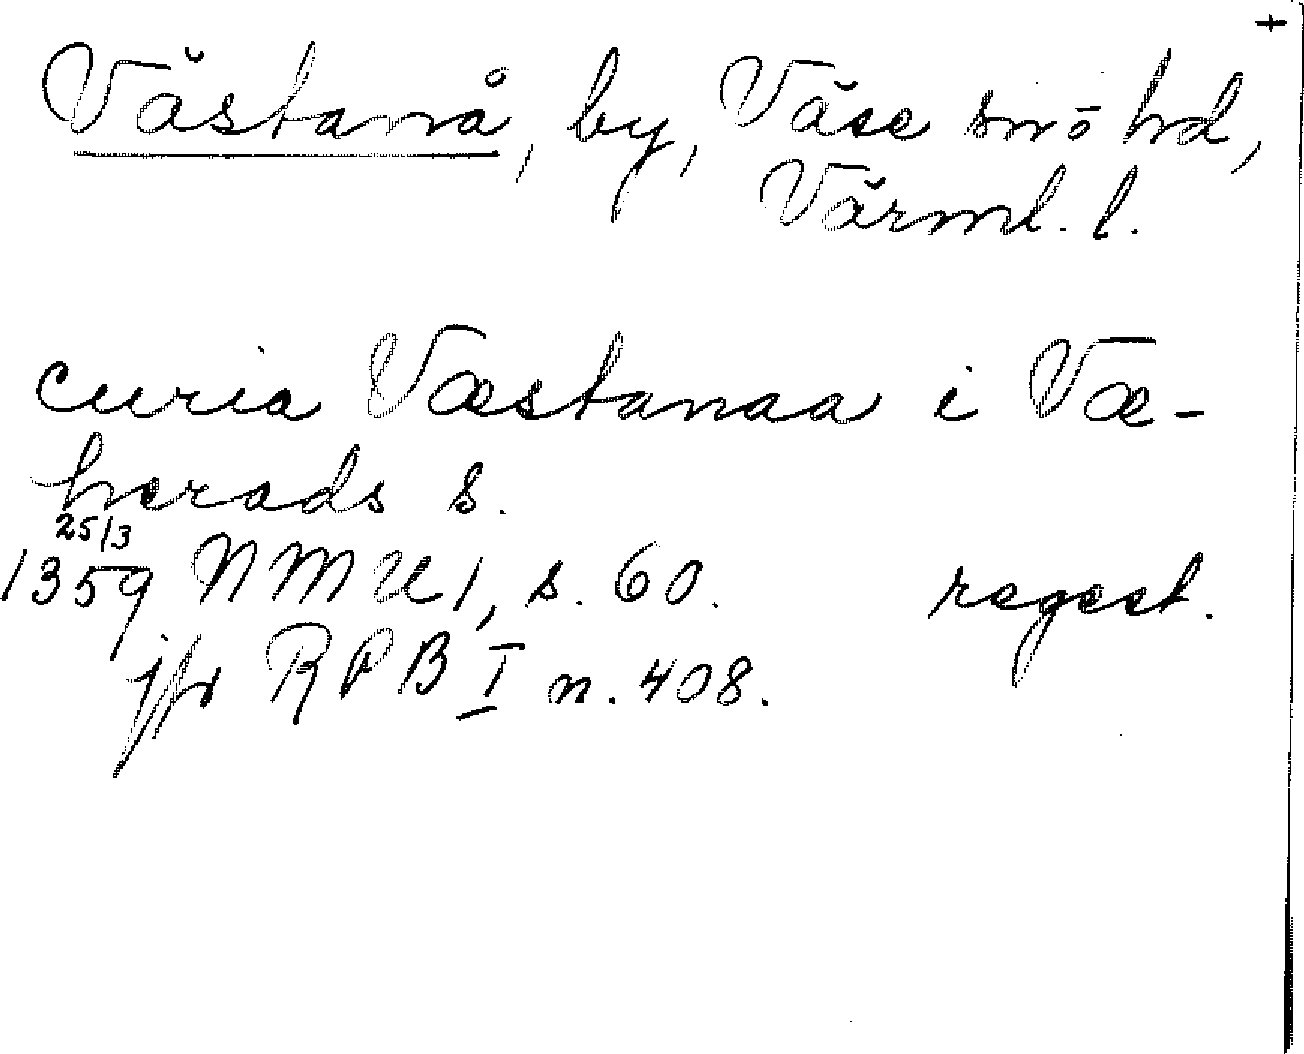 +
Västanå, by, Väse sn ō hd,
Värml. l.
curia Væstanaa i Væ-
herads s.
25/3
1359 NMU 1, s. 60. regest.
jfr RPB I n. 408.